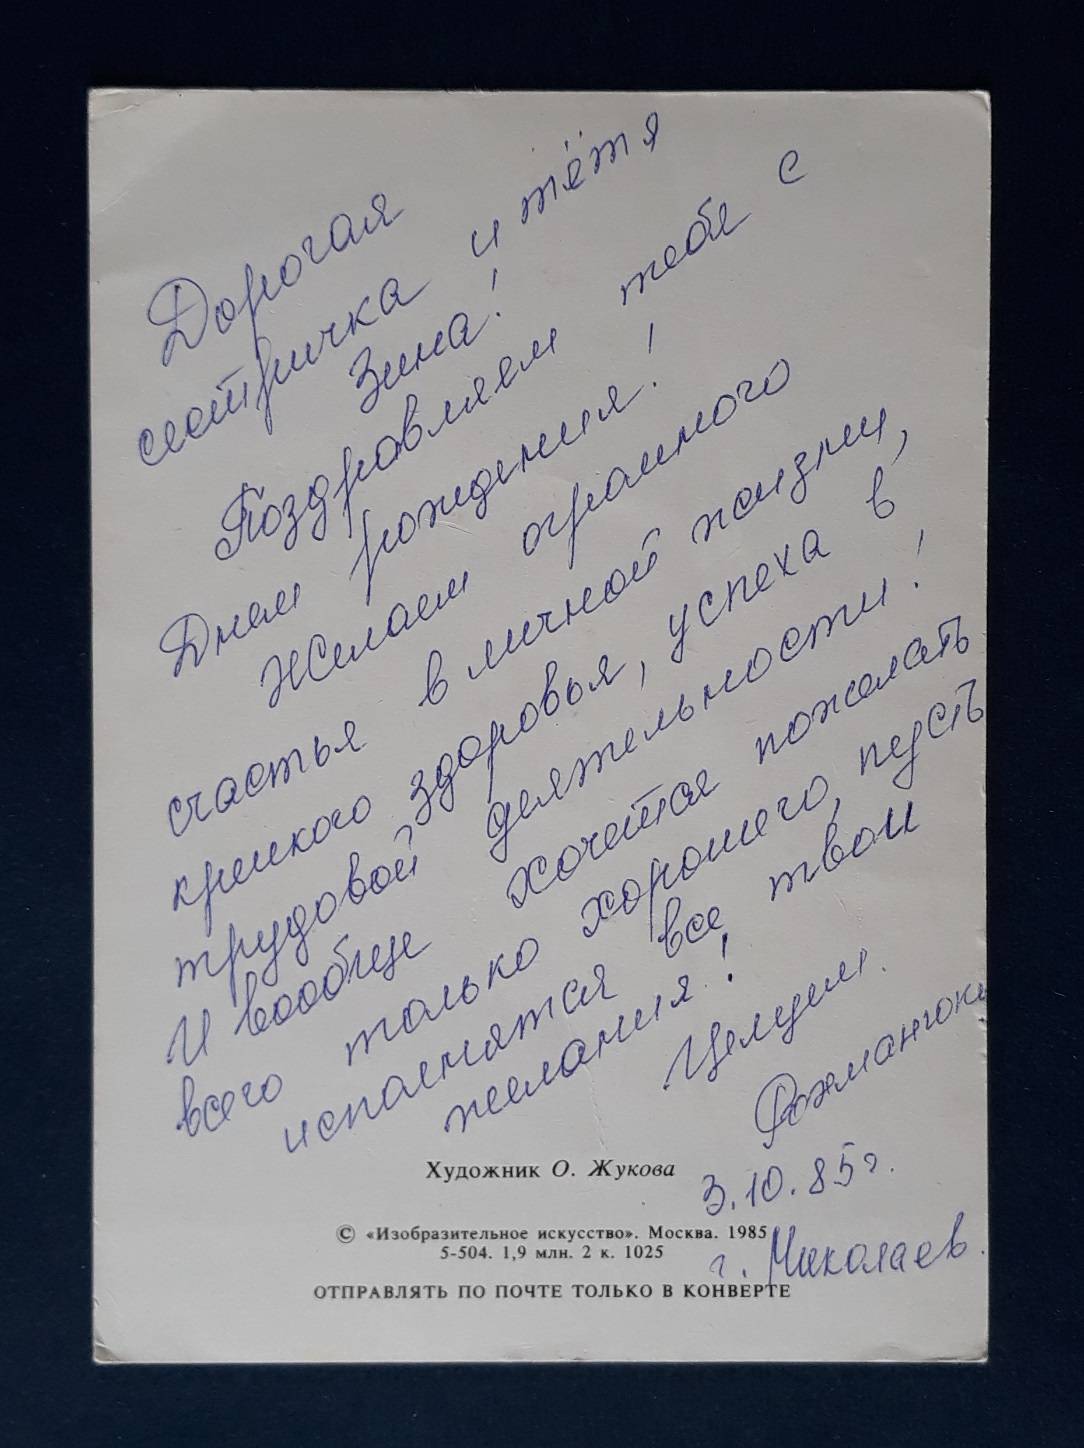 Дорогая
сестричка и тётя
Зина!
Поздравляем тебя с
Днем рождения!
Желаем огромного
счастья в личной жизни,
крепкого здоровья, успеха в
трудовой деятельности!
И вообще хочется пожелать
всего только хорошего, пусть
исполнятся все твои
желания!
Целуем.
3.10.85г.
г. Николаев.
Художник О. Жукова
© «Изобразительное искусство». Москва. 1985
5-504. 1,9 млн. 2 к. 1025
ОТПРАВЛЯТЬ ПО ПОЧТЕ ТОЛЬКО В КОНВЕРТЕ